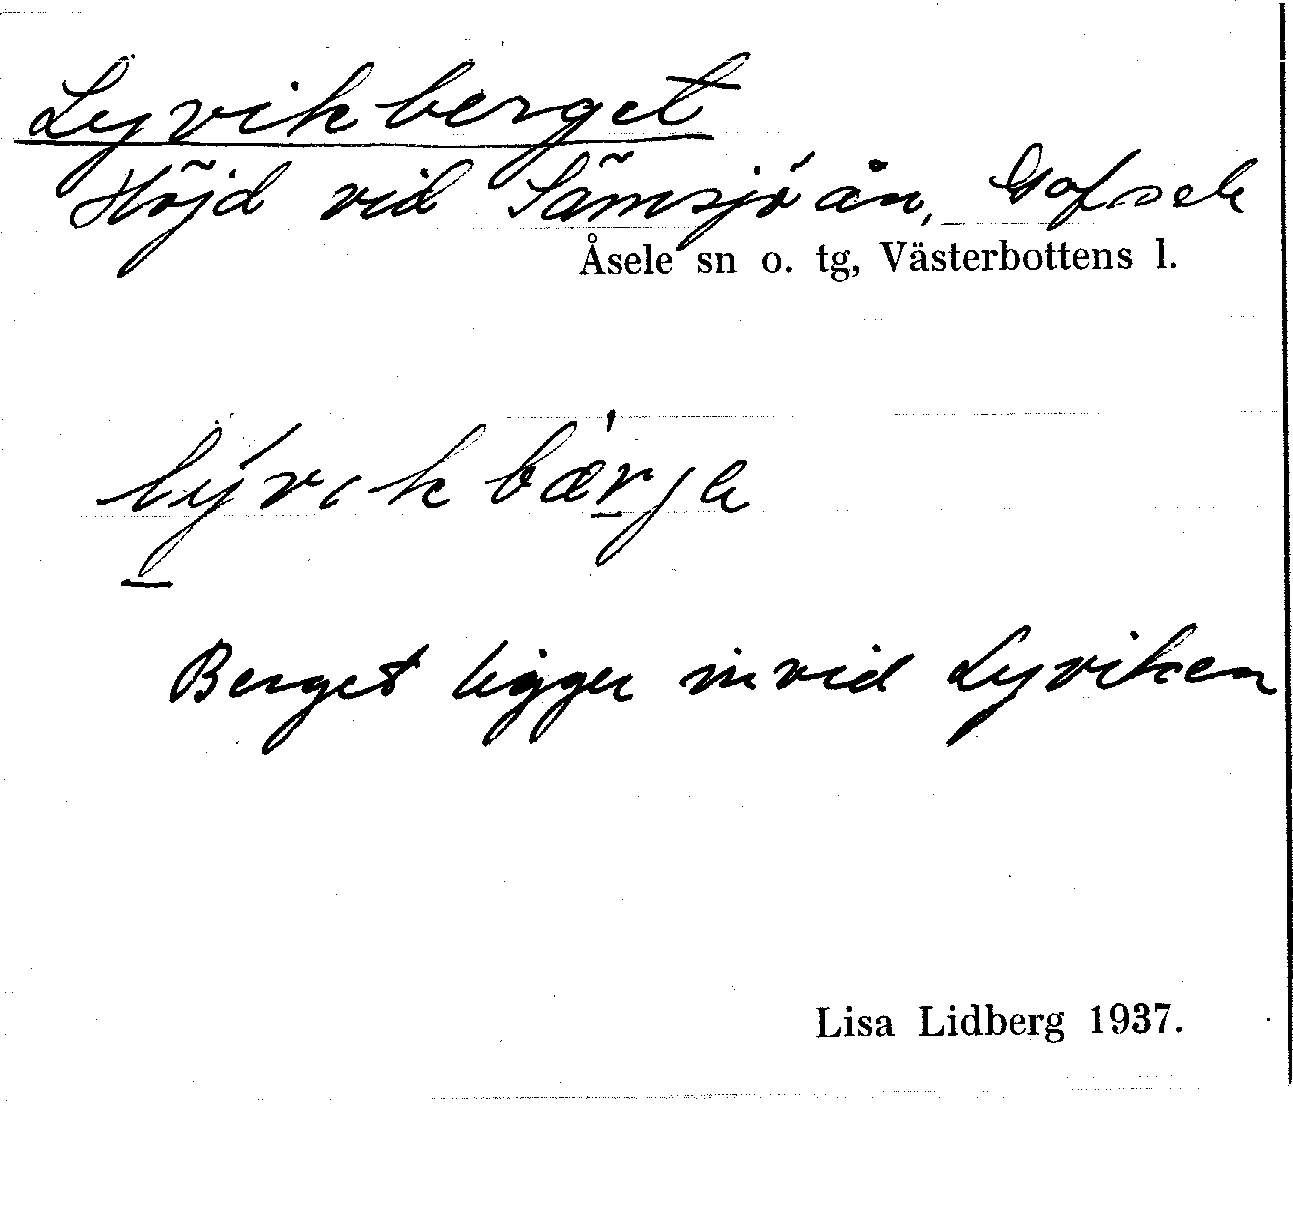 Lyvikberget
Höjd vid Sämsjöån, Gafsele
Åsele sn o. tg, Västerbottens l.
lývikbær̲ja
Berget ligger invid Lyviken
Lisa Lidberg 1937.